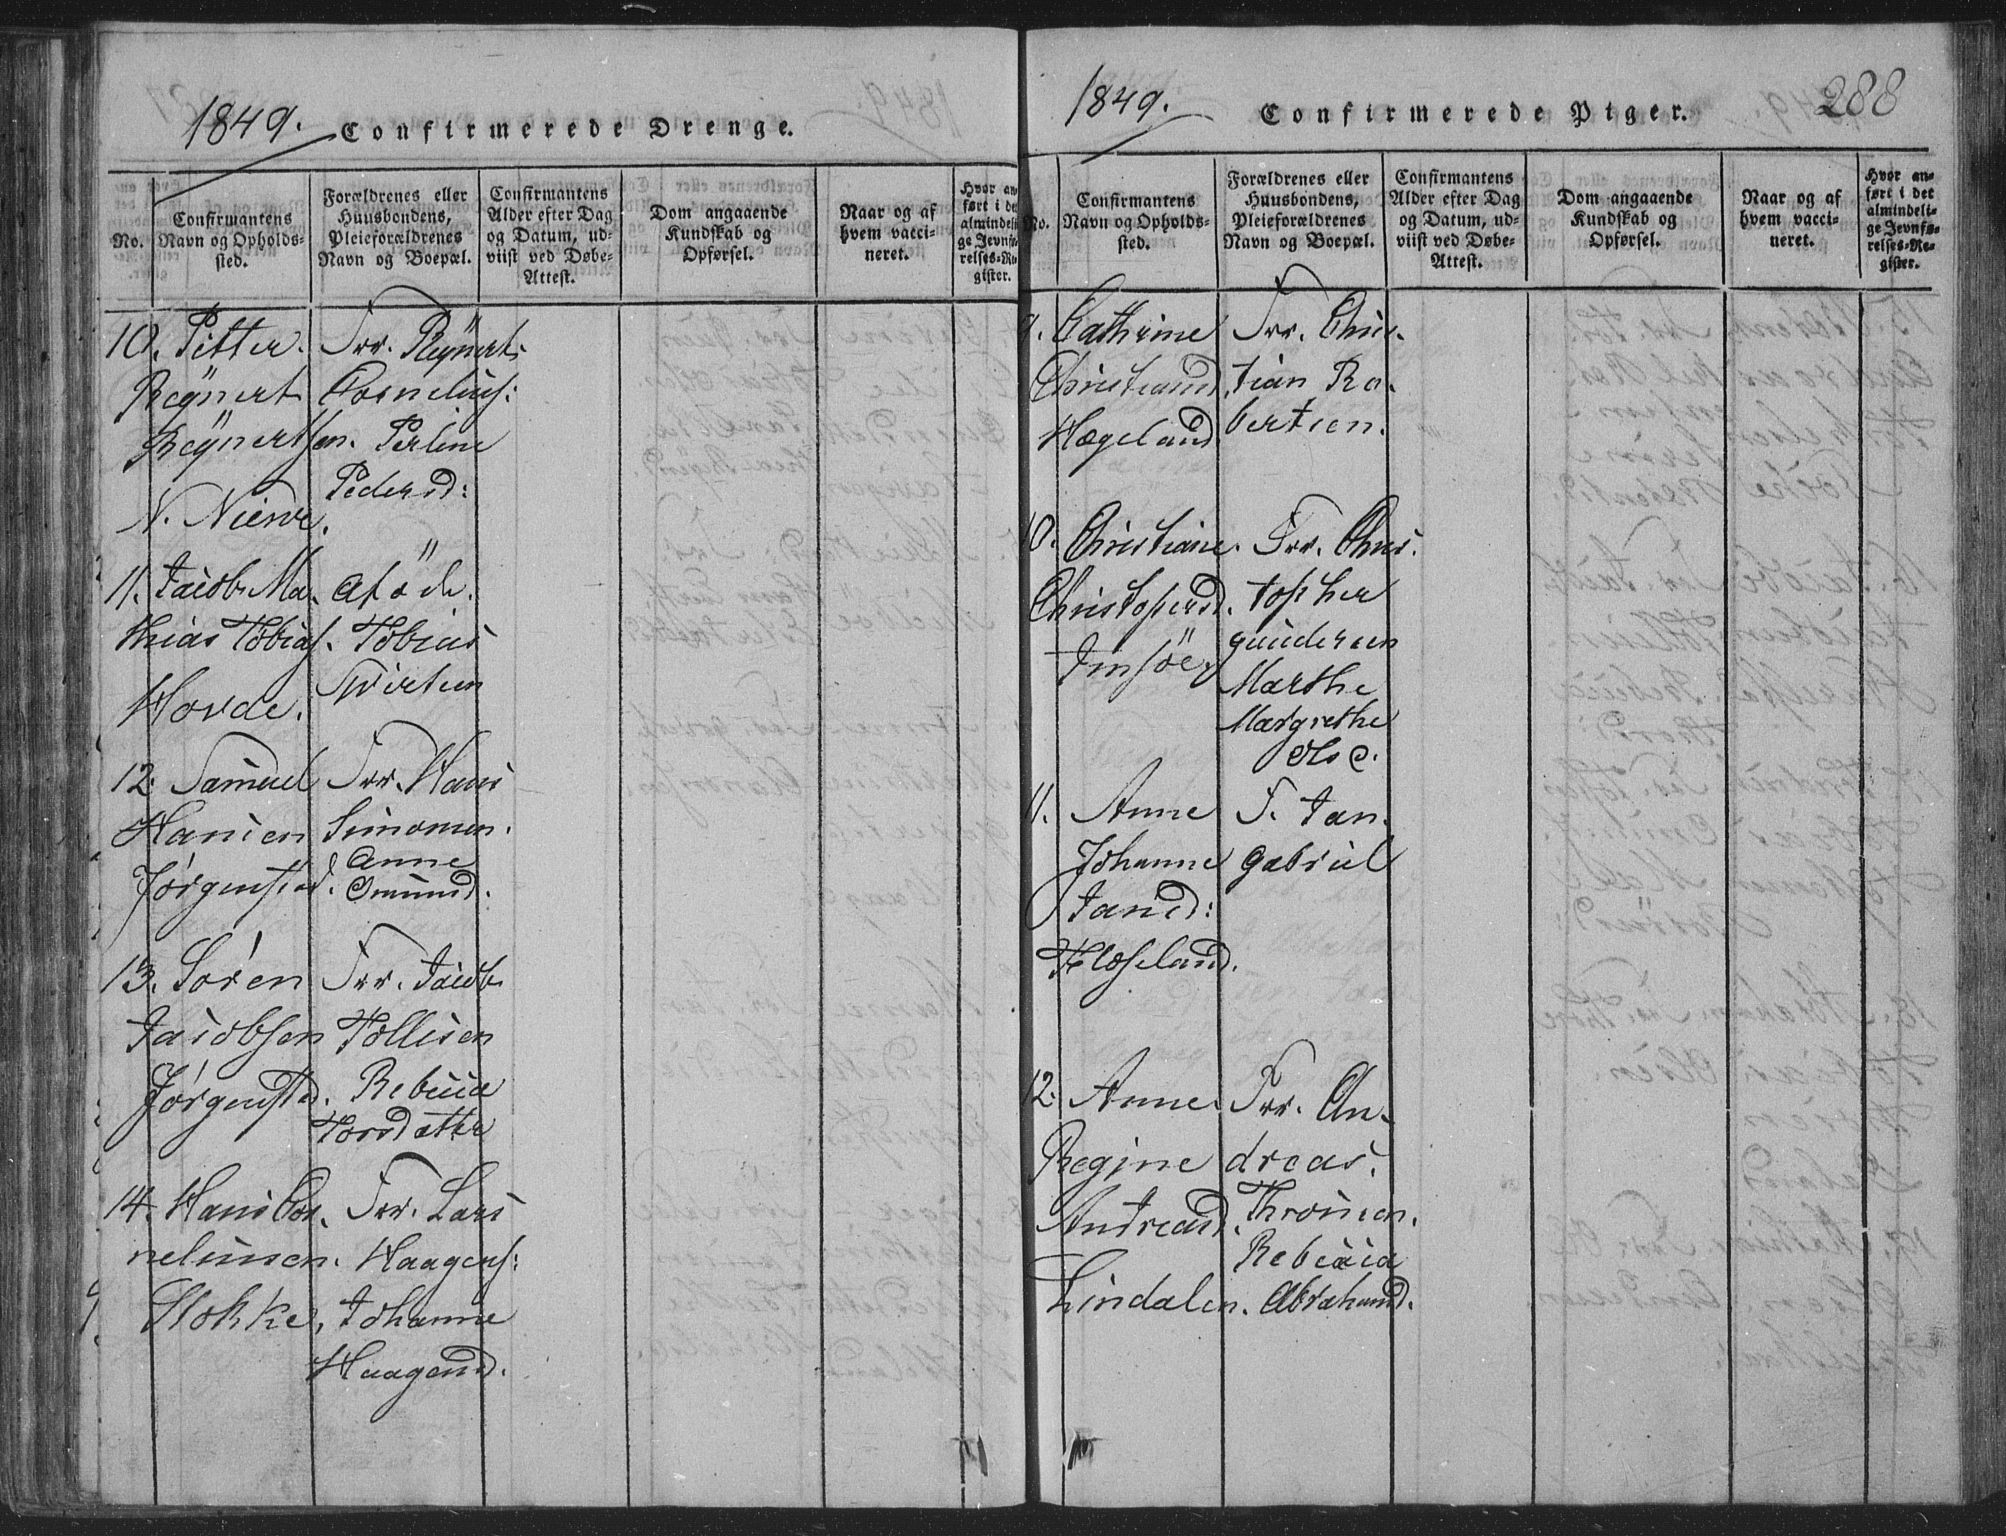 1849. Confirmerede Drenge.
No.
Confirmantens
Navn og Opholds-
sted.
Forældrenes eller
Huusbondens,
Pleieforældrenes
Navn og Boepæl.
Confirmantens
Alder efter Dag
og Datum, ud-
viist ved Døbe-
Attest.
Dom angaaende
Kundskab og
Opførsel.
Naar og af
hvem vacci-
neret.
Hvor an-
ført i det
almindeli-
ge Jevnfø-
relses-Re-
gister.
10. Pitter.
Regnert
Regnertsen.
N. Nierve.
Forr. Regnert
Cornelius:
Perline
Pedersd:
11. Jacob Ma-
thias Tobias.
Hovde.
Afød.
Tobias
12. Samuel
Hansen
Jørgensted.
Forr. Hans
Simonsen.
Anne
Omunds.
13. Søren
Jacobsen
Jørgensted.
Forr. Jacob
Tollisen
Rebecca
Torsdatter
14. Hans Cor-
neliussen.
Stokke.
Forr. Lars
Haagens:
Johanne
Haagensd.
1849. Confirmerede Piger. 288
No.
Confirmantens
Navn og Opholds-
sted.
Forældrenes eller
Huusbondens,
Pleieforældrenes
Navn og Boepæl.
Confirmantens
Alder efter Dag
og Datum, ud-
viist ved Døbe-
Attest.
Dom angaaende
Kundskab og
Opførsel.
Naar og af
hvem vacci-
neret.
Hvor an-
ført i det
almindeli-
ge Jevnfø-
relses-Re-
gister.
9. Cathrine
Christiansd.
Hægeland
Forr. Chris-
tian Ro-
bertsen.
10. Christiane.
Christopersd.
Imsöe
Forr. Chris-
topher
gundersen
Marthe
Margrethe
Ols d.
11. Anne
Johanne
Jansd:
Flaseland.
F. Jan
Gabriel
12. Anne
Regine
Andreasd.
Lindalen.
Forr. An-
dreas.
Thronsen.
Rebecca
Abrahamsd.